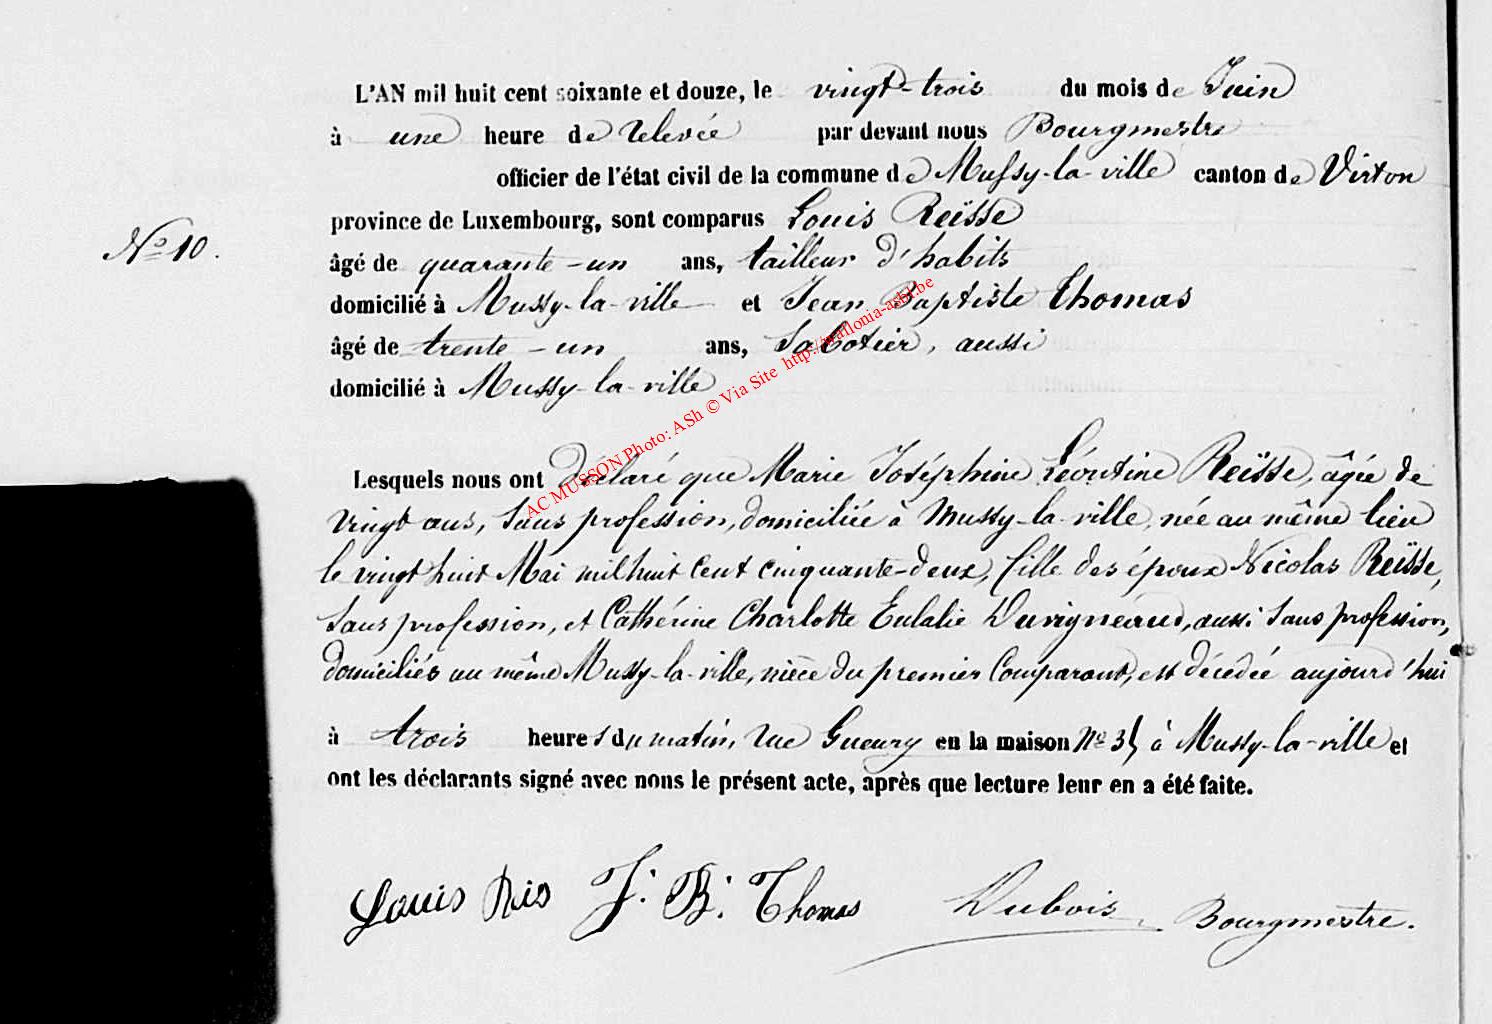 L'AN mil huit cent soixante et douze, le vingt-trois du mois de Juin
à une heure de relevée par devant nous Bourgmestre
officier de l'état civil de la commune de Mussy-la-ville canton de Virton
province de Luxembourg, sont comparus Louis Reïsse
N° 10.
âgé de quarante-un ans, tailleur d'habits
domicilié à Mussy-la-ville et Jean Baptiste Thomas
âgé de trente-un ans, Sabotier, aussi
domicilié à Mussy-la-ville
AC MUSSON Photo: ASh © Via Site http://wallonia-asbl.be
Lesquels nous ont déclaré que Marie Joséphine Léontine Reïsse, âgée de
vingt ans, sans profession, domiciliée à Mussy-la-ville, née au même lieu
le vingt huit Mai mil huit cent cinquante-deux, fille des époux Nicolas Reïsse,
sans profession, et Cathérine Charlotte Eulalie Duvigneaud, aussi sans profession,
domiciliés au même Mussy-la-ville, nièce du premier Comparant, est décédée aujourd'hui
à trois heures du matin, rue Gueury en la maison N° à Mussy-la-ville et
ont les déclarants signé avec nous le présent acte, après que lecture leur en a été faite.
Louis Reis J. B. Thomas Dubois Bourgmestre.